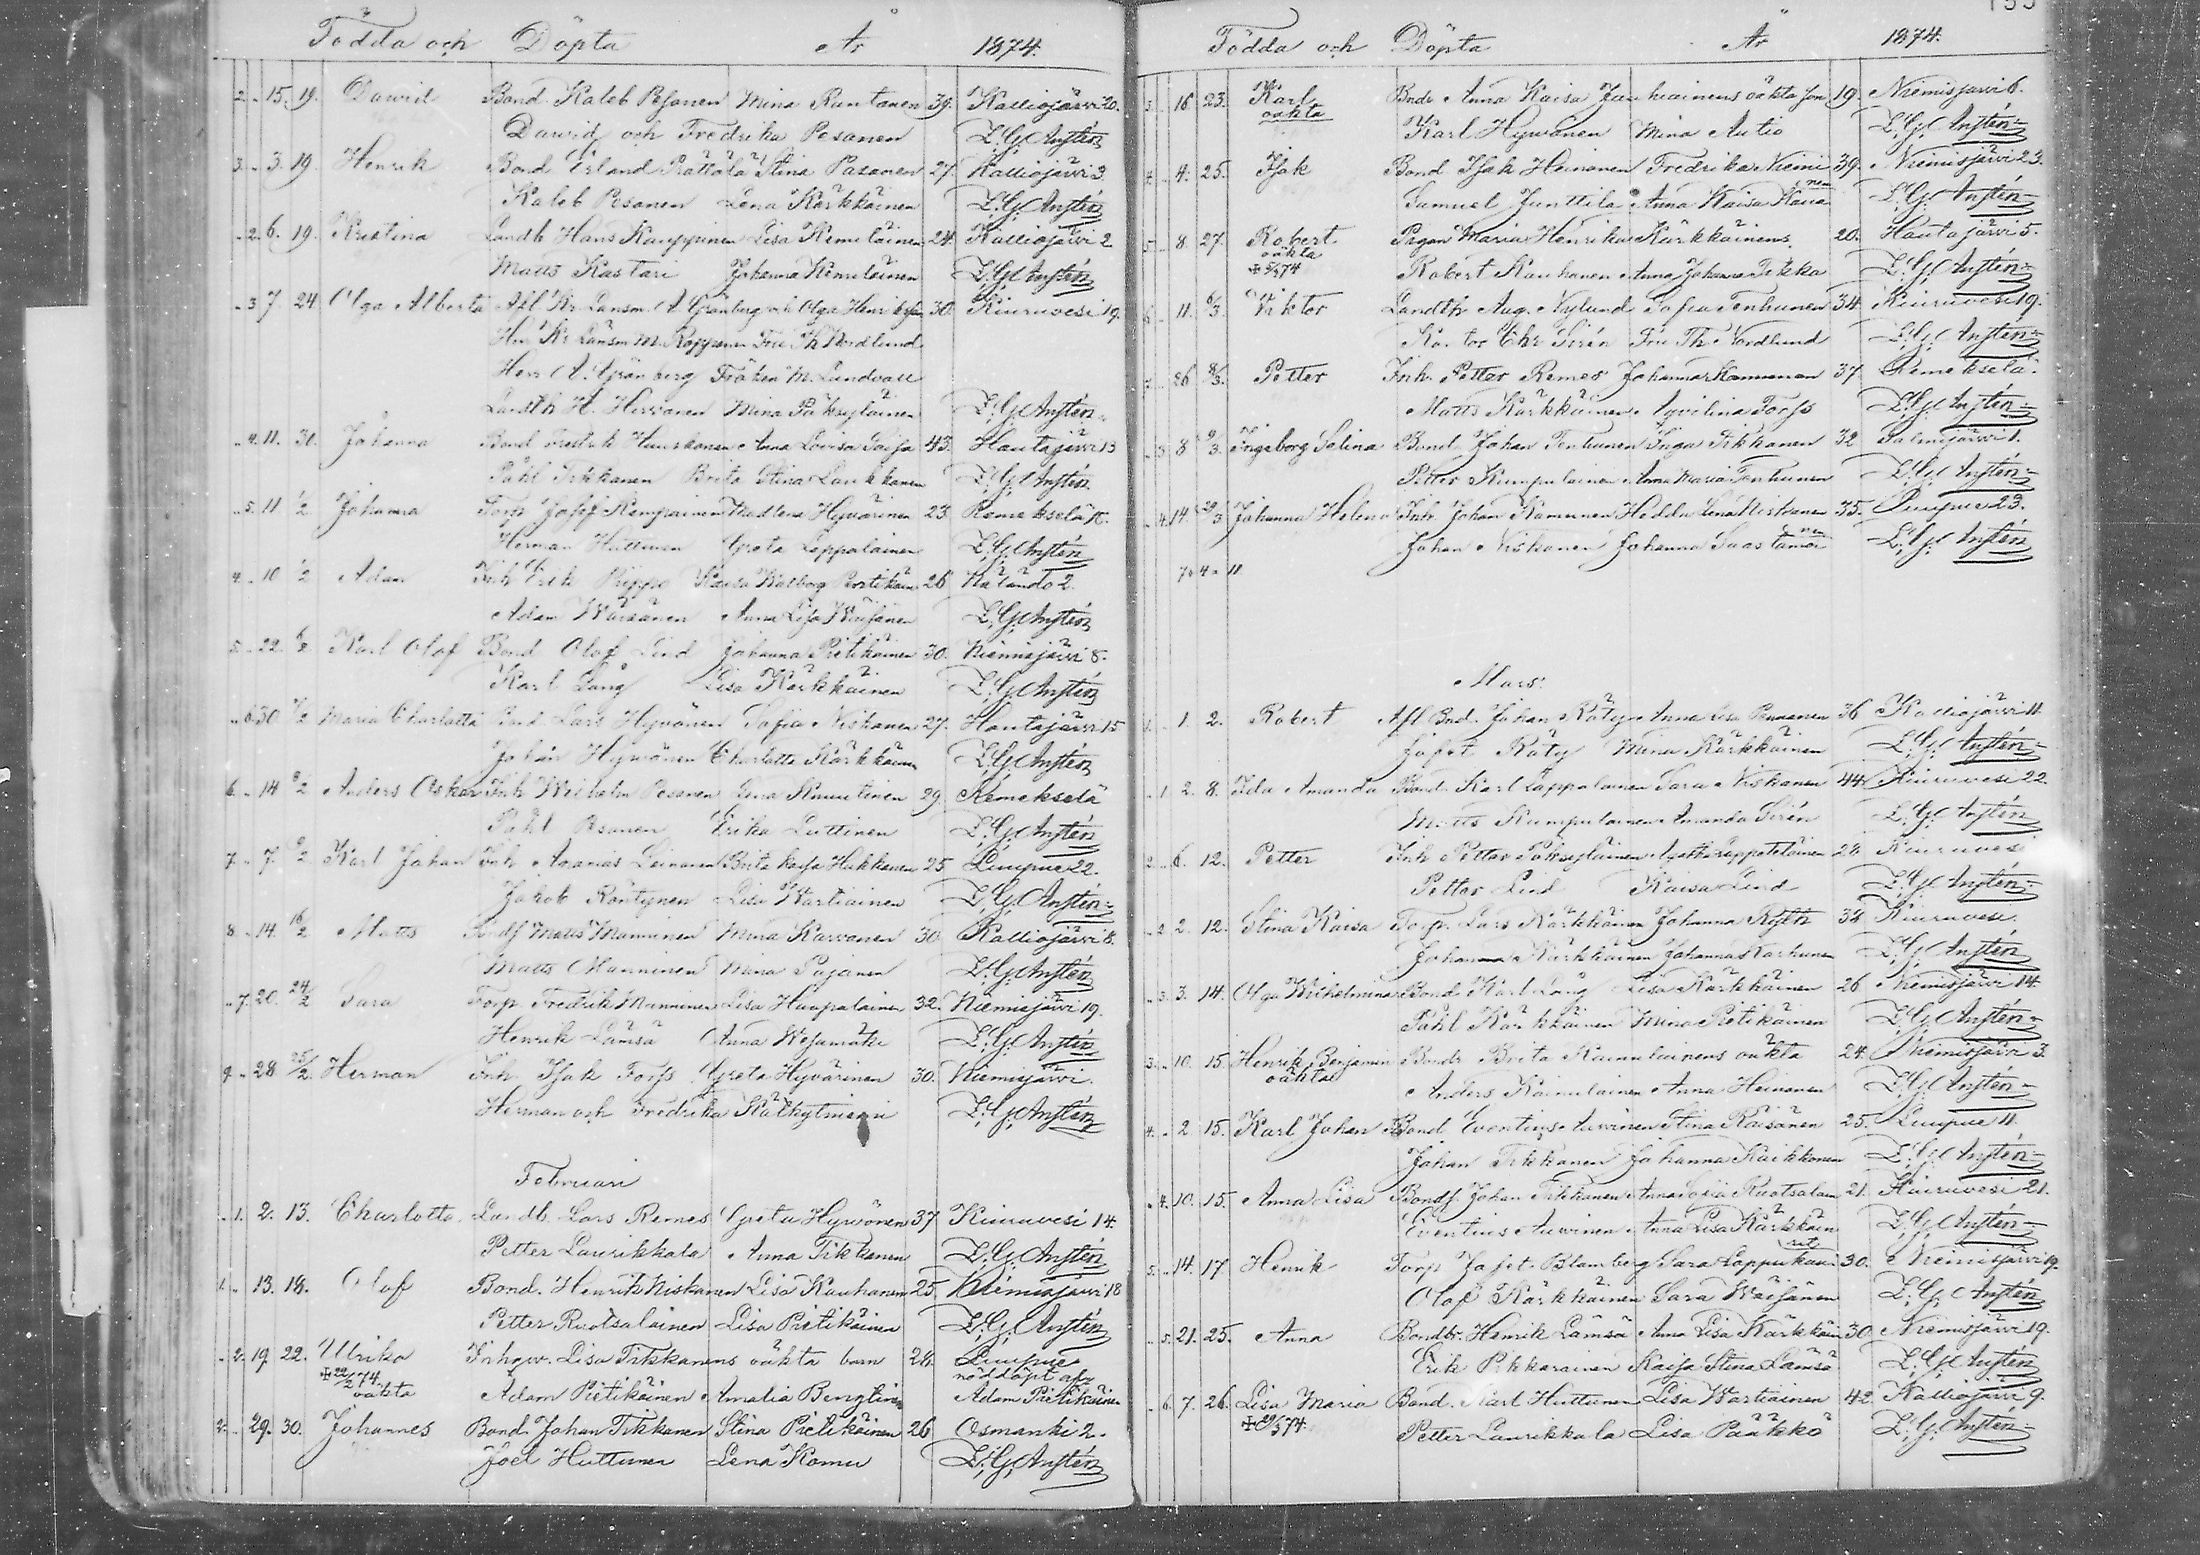 Födda och Döpta År 1874.
2. 15. 19. Dawid Bond Kaleb Pesonen Mina Runtanen 39. Kalliojärvi 20.
Dawid och Fredrika Pesanen L. G. Anstén
3. 3. 19. Henrik Bond Erland Rättälä Stina Pasanen 27. Kalliojärvi 3.
Kaleb Pesanen Lena Kärkkäinen L. G. Anstén
2. 6. 19. Kristina Landb Hans Kauppinen Lisa Kemiläinen 24. Kalliojärvi 2
Matts Kastari Johanna Kemiläinen L. G. Anstén
3 7. 24. Olga Alberta Afl Kr. Länsm. A. Granberg och Olga 30. Kiuruvesi 19.
Herr Kr Länsm M. Roppanen Fru Th Nordlund
Herr A. Granberg Fröken M. Lundvall
H. Mina Säkseyläinen L. G. Anstén
4. 11. 31. Johanna Bond Fredrik Huuskonen Anna Lovisa 43. Hautajärvi 13
Påhl Tikkanen Brita Stina Laukkanen L. G. Anstén
5. 11 1/2 Johanna Torp Josef Kempainen Madlena Hyvärinen 23 Remekselä
Herman Huttunen Greta Lappalainen L. G. Anstén
4. 10 1/2 Adam Inh Erik Piippo Kaisa Walborg 26 Näläntö 2.
Adam Wäisänen Anna Lisa Wäisänen L. G. Anstén
5. 22. Karl Olof Bond Olof Lind Johanna Pietikäinen 30. Niemisjärvi 8.
Karl Lång Lisa Kärkkäinen L. G. Anstén
6 30. Maria Charlotta Bond Lars Hyvönen Sofia Niskanen 27. Hautajärvi 15
Johan Hyvönen Charlotta Kärkkäinen L. G. Anstén
6. 14 8/2 Anders Oskar Inh Wilhelm Pesonen Lena Knuutinen 29. Remekselä
Påhl Pesanen Erika Luttinen L. G. Anstén
7. 7. Karl Johan Inh Ananias Leinonen Brita Kajsa Hakkanen 25 Luupue 22.
Jakob Röntynen Lisa Wartiainen L. G. Anstén
8. 14. 16/2 Matts Matts Manninen Mina Karvonen 30. Kalliojärvi 8.
Matts Manninen Mina Pajanen L. G. Anstén
7. 20. 24/2 Sara Torp Fredrik Manninen Lisa Haapalainen 32. Niemisjärvi 19.
Henrik Lämsä Anna Wesamäki L. G. Anstén
9. 28 25/2 Herman Inh. Isak Forss Greta Hyvärinen 30. Niemisjärvi.
Herman och Fredrika Kälkytniemi L. G. Anstén
Februari
1. 2. 13. Charlotta Landb. Lars Remes Greta Hyvönen 37 Kiuruvesi 14.
Petter Laurikkala Anna Tikkanen L. G. Anstén
1. 13. 18. Olof Bond. Henrik Niskanen Lisa Kauhanen 25. Niemisjärvi 18
Petter Ruotsalainen Lisa Pietikäinen L. G. Anstén
2. 19. 22. Ulrika Inhqw. Lisa Tikkanens oäkta barn 28. Luupue
✠ 22/2 74. oäkta Adam Pietikäinen Amalia Benglin nöddöpt af Adam Pietikäinen
2. 29. 30. Johannes Bond. Johan Tikkanen Stina Pietikäinen 26 Osmanki 2.
Joel Huttunen Lena Komu L. G. Anstén
Födda och Döpta År 1874.
3. 16 23. Karl Bndr Anna Kaisa Jauhiainens oäkta son 19. Niemisjärvi 6.
oäkta Karl Hyvönen Mina Autio L. G. Anstén
4. 4. 25. Isak Bond Isak Heinonen Fredrika Nieminen 39. Niemisjärvi 23.
Samuel Junttila Anna Kaisa L. G. Anstén
5. 8. 27. Robert Pigan Maria Henrika Kärkkäinens 20. Hautajärvi 5.
oäkta Robert Kauhanen Anna Johanna Tikka L. G. Anstén
6. 11. 6/3 Viktor Landth Aug. Nylund Sofia Tenhunen 34. Kiuruvesi 19.
Kantor Chr Sirén Fru Th Nordlund L. G. Anstén
7. 26 8/3. Petter Inh. Petter Remes Johanna 37. Remekselä.
Matts Kärkkäinen Aqvilina Forss L. G. Anstén
3 8 9/3. Ingeborg Selina Bond Johan Tenhunen Inga Tikkanen 32 Salmijärvi 1.
Petter Kumpulainen Anna Maria Tenhunen L. G. Anstén
4. 14. 29/3 Johanna Helena Inh. Johan Kämunen Hedda Lena Niskanen 35. Luupue 23.
Johan Niskanen Johanna Saastamoinen L. G. Anstén
7 4 11
Mars.
1. 1. 2. Robert Afl Bnd. Johan Räty Anna Lisa Pennanen 36 Kalliojärvi 11.
Jafet Räty Mina Kärkkäinen L. G. Anstén
1 2. 8. Ida Amanda Bond. Karl Lappalainen Sara Niskanen 44. Kiuruvesi 22.
Matts Kumpulainen Amanda Sirén L. G. Anstén
2. 6. 12. Petter Inh Petter Säkseyläinen Agatha 28 Kiuruvesi
Petter Lind Kaisa Lind L. G. Anstén
2 2. 12. Stina Kaisa Torp. Lars Kärkkäinen Johanna 38 Kiuruvesi.
Johan Kärkkäinen Johanna Karhunen L. G. Anstén
3. 3. 14. Olga Wilhelmina Bond Karl Lång Lisa Kärkkäinen 26 Niemisjärvi 14.
Påhl Kärkkäinen Mina Pietikäinen L. G. Anstén
3. 10. 15. Henrik Benjamin Bondr Brita Kainulainens oäkta 24. Niemisjärvi 3.
oäkta Anders Kainulainen Anna Heinonen L. G. Anstén
4. 2 15. Karl Johan Bond Eventius Auvinen Stina Räisänen 25. Luupue 11.
Johan Tikkanen Johanna Kaikkonen L. G. Anstén
4. 10. 15. Anna Lisa Bonds. Johan Tikkanen Anna Sofia Ruotsalain 21. Kiuruvesi 21.
Eventius Auvinen Anna Lisa Kärkkäin L. G. Anstén
5. 14. 17 Henrik Torp Jafet Blomberg Sara 30. Niemisjärvi 19.
Olof Kärkkäinen Sara Wäisänen L. G. Anstén
5. 21. 25. Anna Bondbr. Henrik Lämsä Anna Lisa Kärkkäin 30. Niemisjärvi 19.
Erik Pikkarainen Kaisa Stina Lämsä L. G. Anstén
6. 7. 26. Lisa Maria Bond. Karl Huttunen Lisa Wartiainen 42. Kalliojärvi 9.
Petter Laurikkala Lisa Pääkkö L. G. Anstén